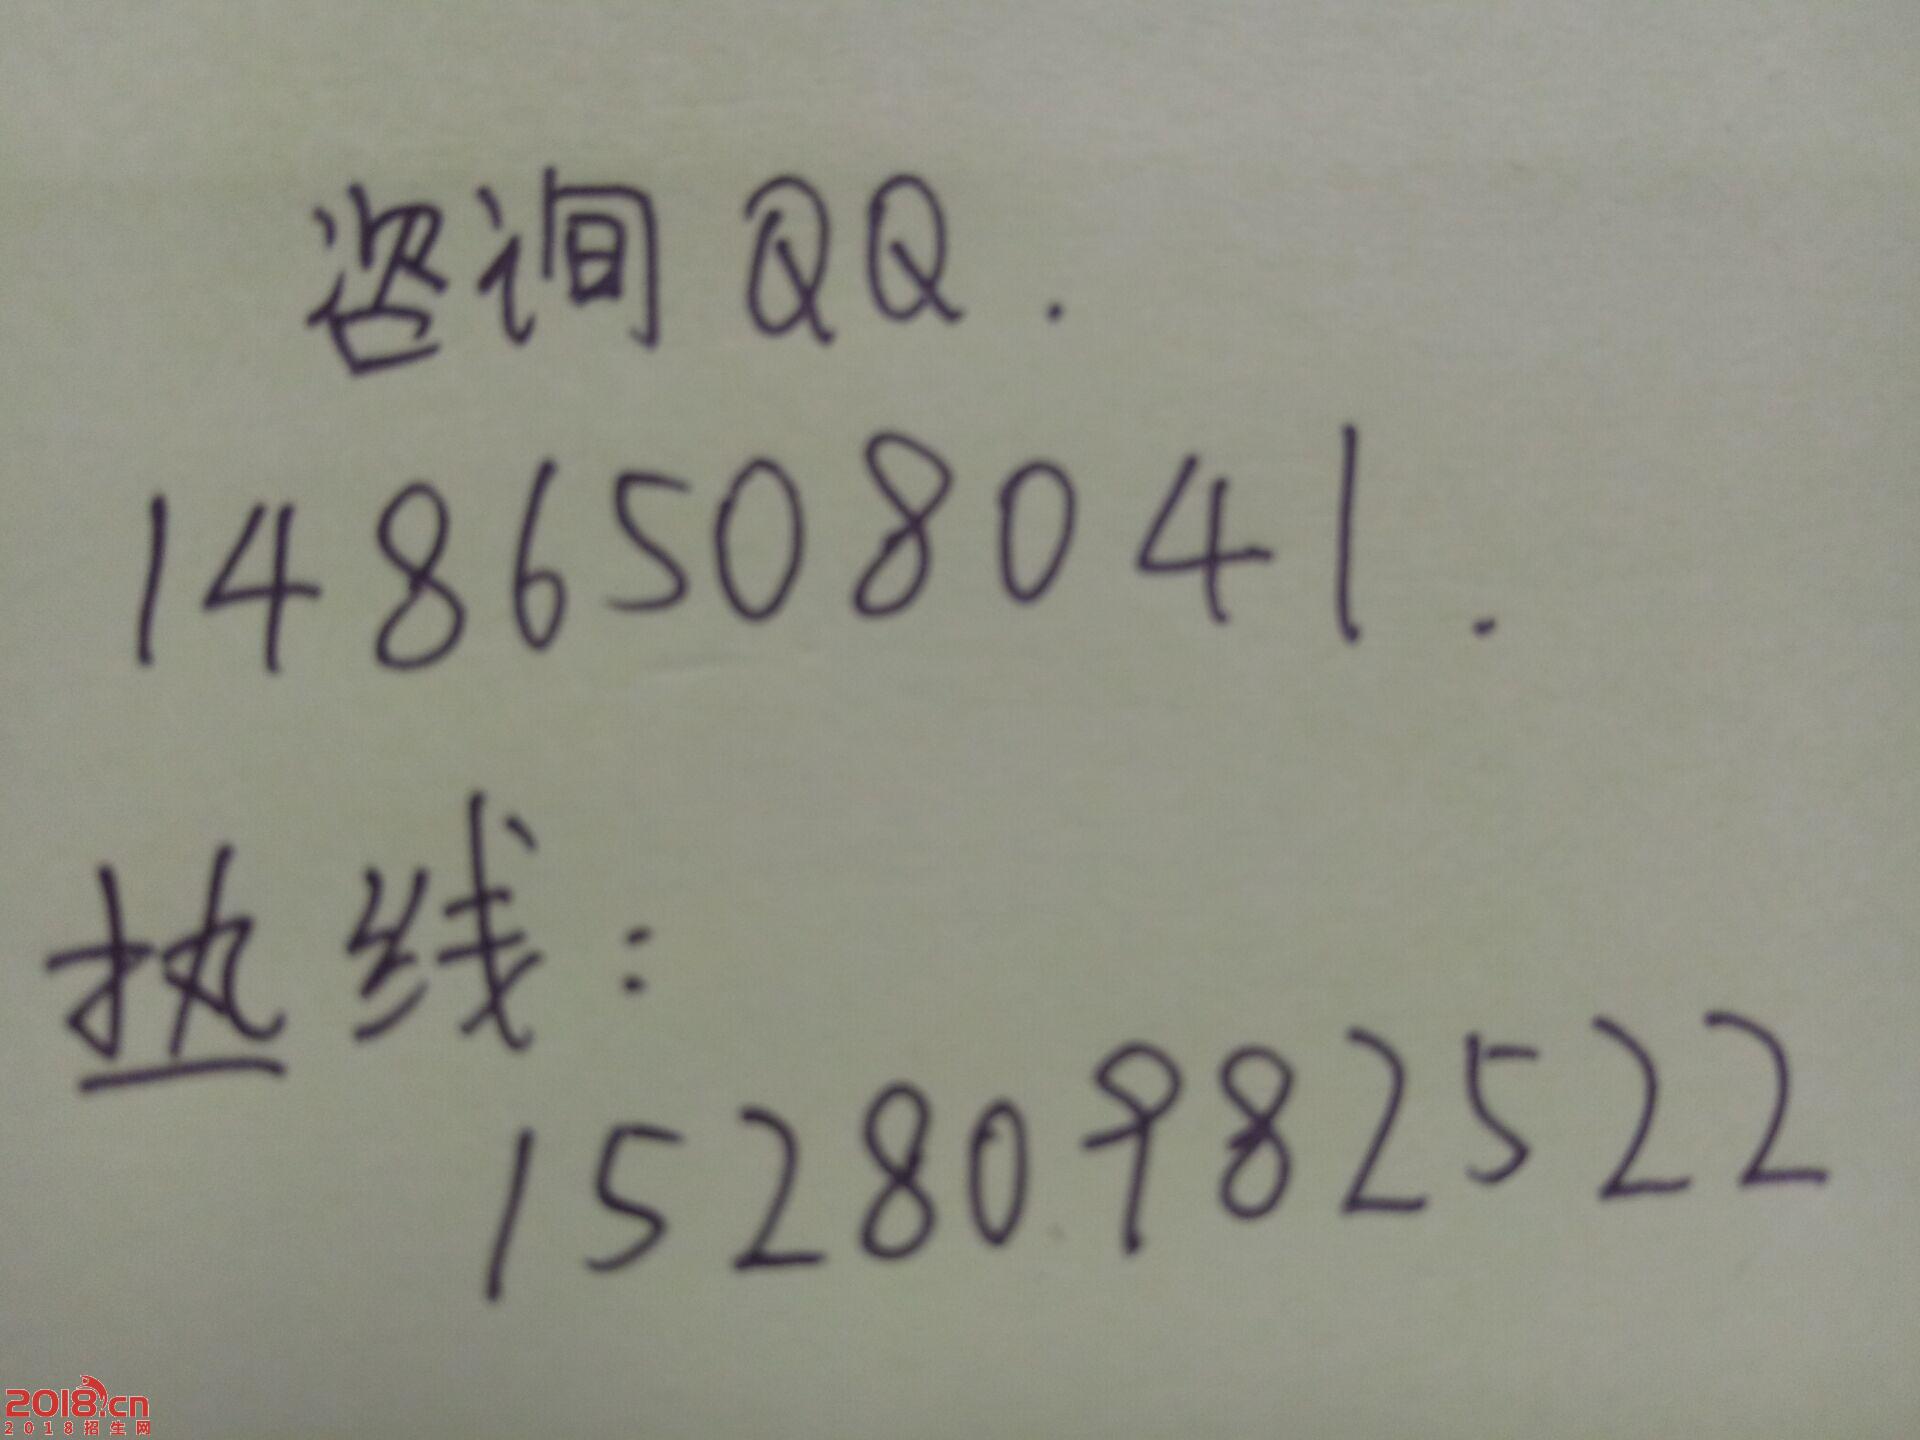 咨询QQ.
1486508041.
热线:
15280982522
2018.cn
2018招生网